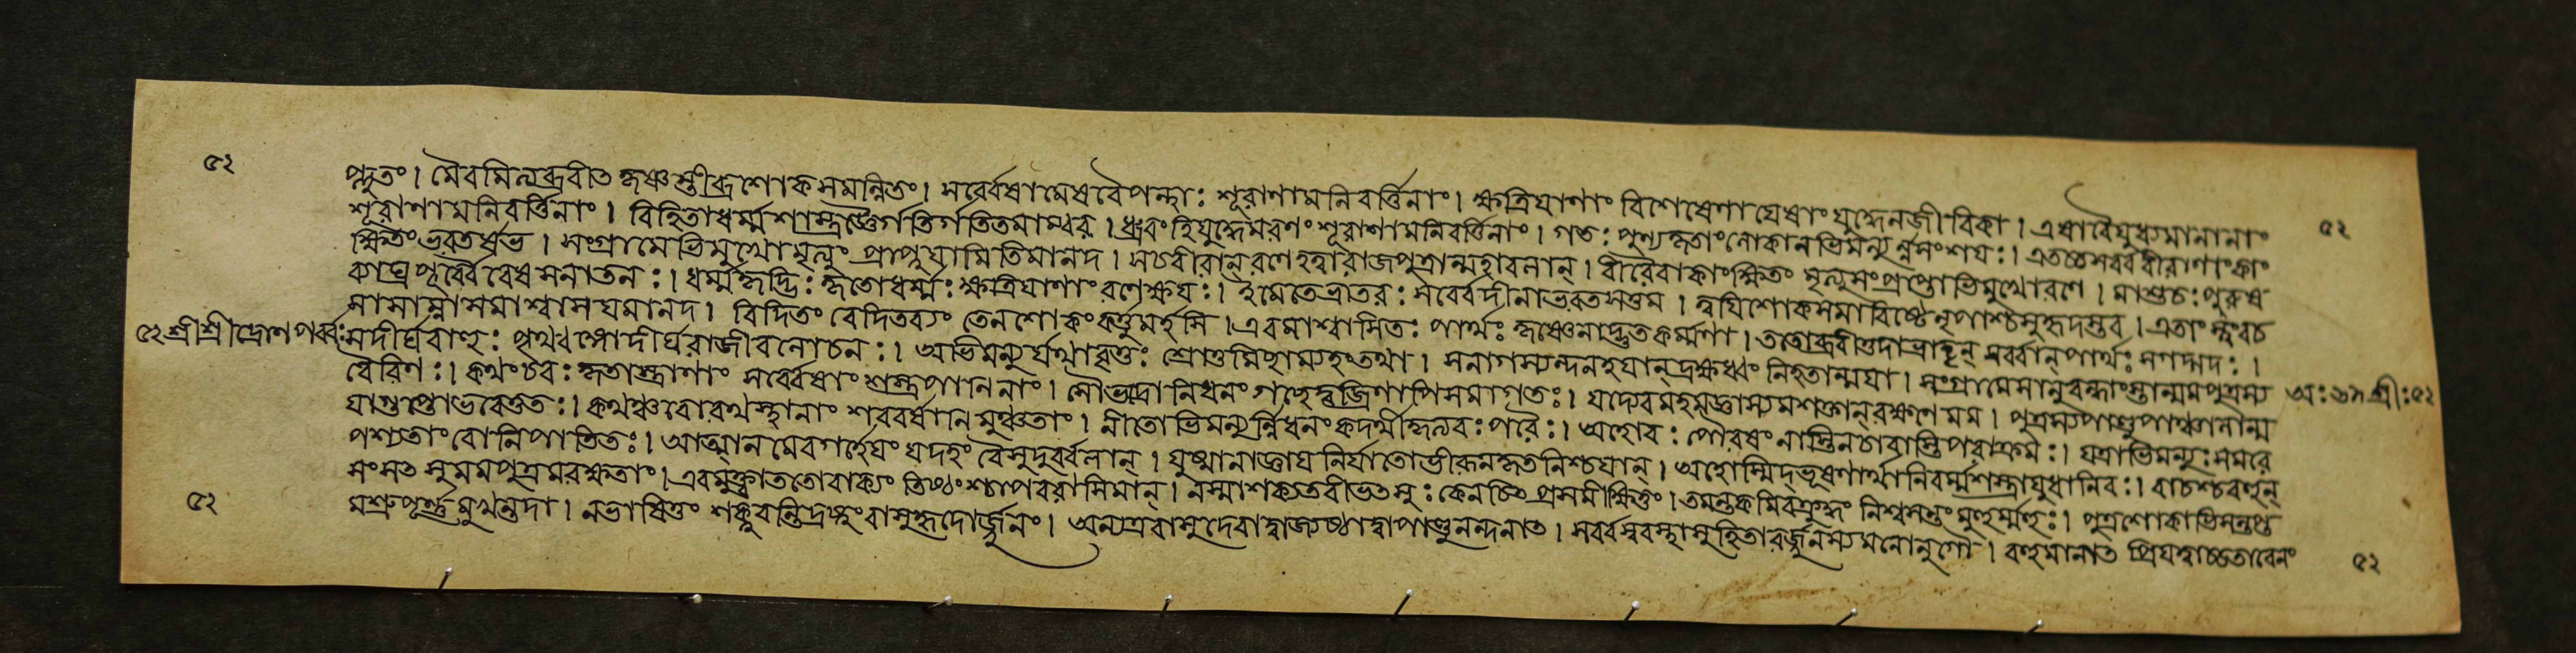 ৫২
প্লুতং। মৈবমিত্যব্রবীত কৃষ্ণস্তীব্রশোকসমন্বিতং। সর্ব্বেষামেষবৈপন্থাঃ শূরাণামনিবর্ত্তিনাং। ক্ষত্রিযাণাং বিশেষেণাযেষাং যুদ্ধেনজীবিকা। এষাবৈযুধ্যমানানাং
৫২
শূরাণামনিবর্ত্তিনাং। বিহিতাধর্ম্মশাস্ত্রজ্ঞৈর্গতির্গতিতমাম্বর। ধ্রুবংহিযুদ্ধেমরণং শূরাণামনিবর্ত্তিনাং। গতঃ পুণ্যকৃতাংলোকানভিমন্যুর্ন্নসংশযঃ। এতচ্চসর্ব্ববীরাণাংকাং
ক্ষিতংভরতর্ষভ। সংগ্রামেভিমুখোমৃত্যুং প্রাপ্নুযামিতিমানদ। সচবীরান্ রণেহত্বারাজপুত্রান্মহাবলান্। বীরৈরাকাংক্ষিতং মৃত্যুসংপ্রাপ্তোভিমুখোরণে। মাশুচঃপুরুষ
ব্যাঘ্রপূর্ব্বৈরেষসনাতনঃ। ধর্ম্মকৃদ্ভিঃকৃতোধর্ম্মঃক্ষত্রিযাণাং রণেক্ষযঃ। ইমেতেভ্রাতরঃ সর্ব্বেদীনাভরতসত্তম। ত্বযিশোকসমাবিষ্টেনৃপাশ্চসুহৃদস্তব। এতাংস্ত্বংবচ
সাসাম্নাসমাশ্বাসযমানদ। বিদিতং বেদিতব্যং তেনশোকংকর্ত্তুমর্হসি। এবমাশ্বাসিতঃ পার্থঃ কৃষ্ণেনাদ্ভুতকর্ম্মণা। ততোব্রবীত্তদাভ্রাতৄন্ সর্ব্বান্পার্থঃসগদ্গদঃ।
৫২শ্রীশ্রীদ্রোণপর্ব্বঃ সদীর্ঘবাহুঃ পৃথ্বংসোদীর্ঘরাজীবলোচনঃ। অভিমন্যুর্যথাবৃত্তঃ শ্রোতুমিচ্ছাম্যহংতথা। সনাগস্যন্দনহযান্দ্রক্ষধ্বং নিহতান্মযা। সংগ্রামেসানুবন্ধাংস্তান্মমপুত্রস্য
বৈরিণঃ। কথংচবঃ কৃতাস্ত্রাণাং সর্ব্বেষাং শস্ত্রপাণিনাং। সৌভদ্রোনিধনং গচ্ছেদ্বজ্রিণাপিসমাগতঃ। যদ্যেবমহমজ্ঞাস্যমশক্তান্রক্ষণেমম। পুত্রস্যপাণ্ডুপাঞ্চালান্ম
যাগুপ্তোভবেত্ততঃ। কথঞ্চবোরথস্থানাং শরবর্ষাণিমুঞ্চতাং। নীতোভিমন্যুর্ন্নিধনংকদর্থীকৃত্যবঃপরৈঃ। অহোবঃ পৌরুষংনাস্তিনচবাস্তিপরাক্রমঃ। যত্রাভিমন্যুঃসমরে
পশ্যতাংবোনিপাতিতঃ। আত্মানমেবগর্হেযং যদহং বৈসুদুর্ব্বলান্। যুষ্মানাজ্ঞাযনির্যাতোভীরূনকৃতনিশ্চযান্। অহোস্বিদ্ভূষণার্থানিবর্ম্মশস্ত্রাযুধানিবঃ। বাচশ্চবক্তুং
সংসত্সুমমপুত্রমরক্ষতাং। এবমুক্ত্বাততোবাক্যং তিষ্ঠংশ্চাপবরাসিমান্। নস্মাশক্যতবীভত্সুঃ কেনচিত্প্রসমীক্ষিতুং। তমন্তকমিবক্রুদ্ধং নিশ্বসন্তংমুহুর্মুহুঃ। পুত্রশোকাভিসন্তপ্ত
৫২
মশ্রুপূর্ণমুখন্তদা। নভাষিতুং শক্নুবন্তিদ্রষ্টুংবাসুহৃদোর্জ্জুনং। অন্যত্রবাসুদেবাদ্বাজ্যেষ্ঠাদ্বাপাণ্ডুনন্দনাত। সর্ব্বাস্ববস্থাসুহিতাবর্জ্জুনস্যমনোনুগৌ। বহুমানাত প্রিযত্বাচ্চতাবেনং
৫২